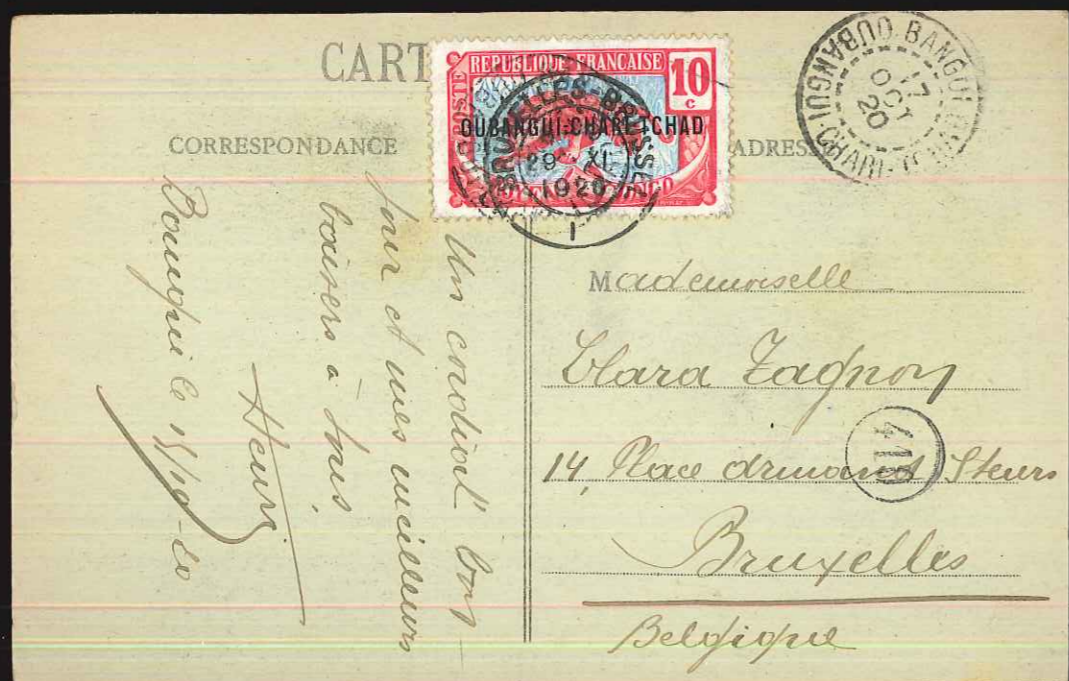 CART
RÉPUBLIQUE FRANÇAISE
10
c
POSTES
OUBANGUI-CHARI-TCHAD
CONGO
BRUXELLES-BRUSSEL
29 XI
1920
1
BANGUI
17
OCT
20
OUBANGUI-CHARI-TCHAD
CORRESPONDANCE
ADRESSE
Un cordial bon-
jour et mes meilleurs
baisers à tous,
Henri
Bangui le 15/10-20
Mademoiselle
Clara Tagnon
14, Place Armand Steurs
Bruxelles
Belgique
410